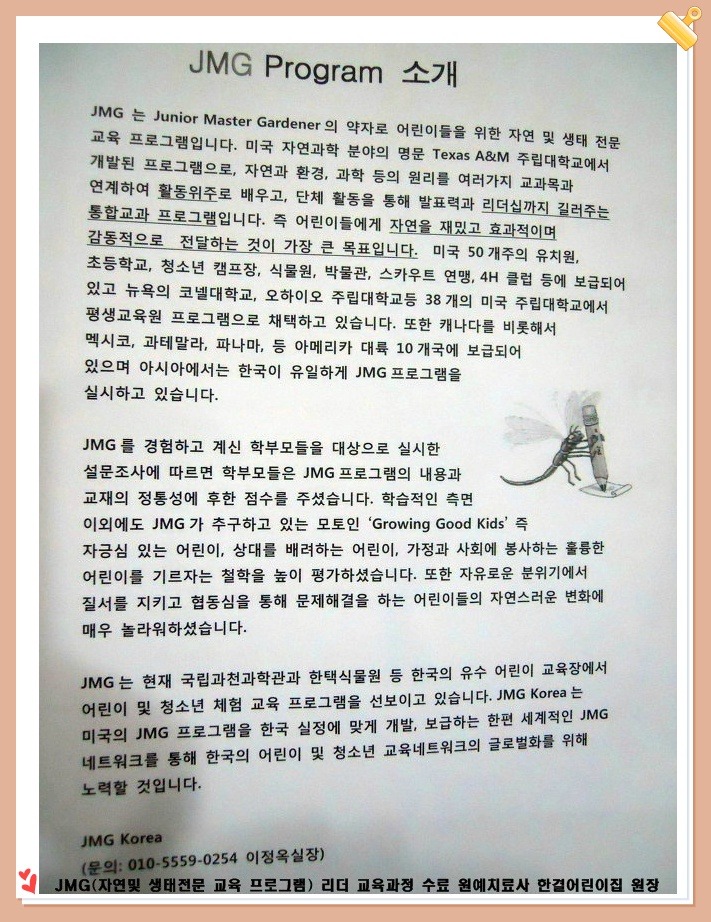 JMG Program 소개
JMG 는 Junior Master Gardener 의 약자로 어린이들을 위한 자연 및 생태 전문
교육 프로그램입니다. 미국 자연과학 분야의 명문 Texas A&M 주립대학교에서
개발된 프로그램으로, 자연과 환경, 과학 등의 원리를 여러가지 교과목과
연계하여 활동위주로 배우고, 단체 활동을 통해 발표력과 리더십까지 길러주는
통합교과 프로그램입니다. 즉 어린이들에게 자연을 재밌고 효과적이며
감동적으로 전달하는 것이 가장 큰 목표입니다. 미국 50 개주의 유치원,
초등학교, 청소년 캠프장, 식물원, 박물관, 스카우트 연맹, 4H 클럽 등에 보급되어
있고 뉴욕의 코넬대학교, 오하이오 주립대학교등 38 개의 미국 주립대학교에서
평생교육원 프로그램으로 채택하고 있습니다. 또한 캐나다를 비롯해서
멕시코, 과테말라, 파나마, 등 아메리카 대륙 10 개국에 보급되어
있으며 아시아에서는 한국이 유일하게 JMG 프로그램을
실시하고 있습니다.
JMG 를 경험하고 계신 학부모들을 대상으로 실시한
설문조사에 따르면 학부모들은 JMG 프로그램의 내용과
교재의 정통성에 후한 점수를 주셨습니다. 학습적인 측면
이외에도 JMG 가 추구하고 있는 모토인 ‘Growing Good Kids’ 즉
자긍심 있는 어린이, 상대를 배려하는 어린이, 가정과 사회에 봉사하는 훌륭한
어린이를 기르자는 철학을 높이 평가하셨습니다. 또한 자유로운 분위기에서
질서를 지키고 협동심을 통해 문제해결을 하는 어린이들의 자연스러운 변화에
매우 놀라워하셨습니다.
JMG 는 현재 국립과천과학관과 한택식물원 등 한국의 유수 어린이 교육장에서
어린이 및 청소년 체험 교육 프로그램을 선보이고 있습니다. JMG Korea 는
미국의 JMG 프로그램을 한국 실정에 맞게 개발, 보급하는 한편 세계적인 JMG
네트워크를 통해 한국의 어린이 및 청소년 교육네트워크의 글로벌화를 위해
노력할 것입니다.
JMG Korea
(문의: 010-5559-0254 이정옥실장)
JMG(자연및 생태전문 교육 프로그램) 리더 교육과정 수료 원예치료사 한결어린이집 원장